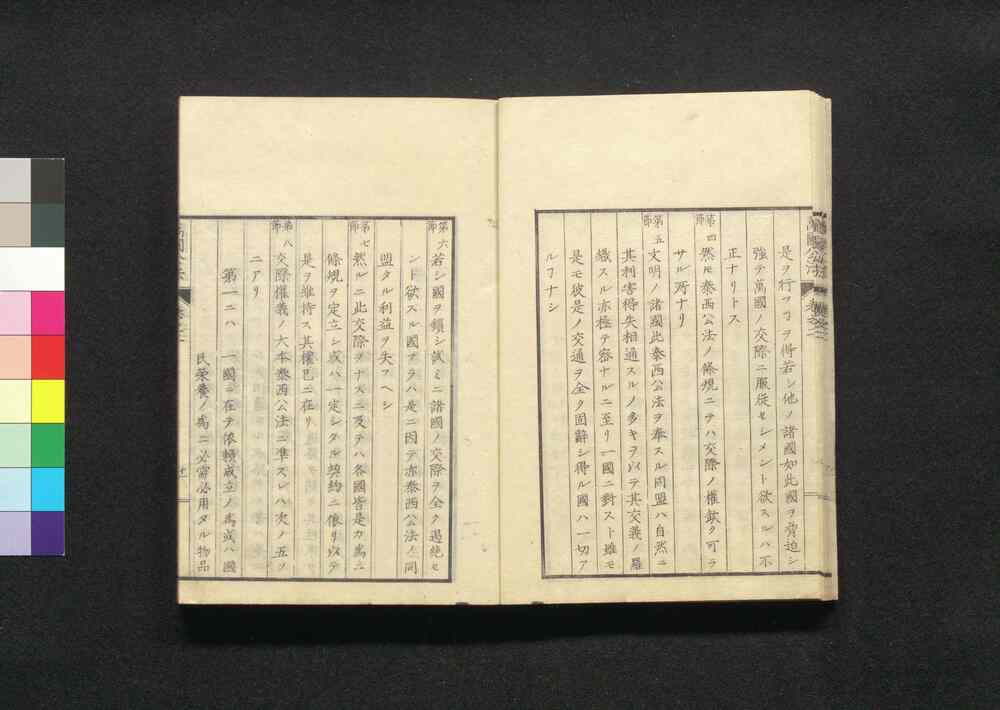 是ヲ行フヿヲ得若シ他ノ諸國如此國ヲ脅迫シ
強テ萬國ノ交際ニ服従セシメント欲スルハ不
正ナリトス
第四節 然ㇾ𪜈泰西公法ノ條規ニテハ交際ノ權歃ク可ラ
サル所ナリ
第五節 文明ノ諸國此泰西公法ヲ奉スル同盟ハ自然ニ
其利害得失相通スルノ多キヲ以テ其交義ノ羅
織スル亦極テ密ナルニ至リ一國ニ對スト雖モ
是モ彼是ノ交通ヲ全ク固辭シ得ル國ハ一切ア
ルヿナシ
第六節 若シ國ヲ鎖シ試ミニ諸國ノ交際ヲ全ク遏絶セ
ント欲スル國アラハ是ニ因テ亦泰西公法上同
盟タル利益ヲ失フヘシ
第七節 然ルニ此交際ヲナスニ及テハ各國皆是カ為ニ
條規ヲ定立シ或ハ一定シタル契約ニ依リ以テ
是ヲ維持ス其權已ニ在リ
第八節 交際權義ノ大本泰西公法ニ準スレハ次ノ五ツ
ニアリ
第一ニハ 一國ニ在テ依頼成立ノ為或ハ國
民榮養ノ為ニ必需必用タル物品